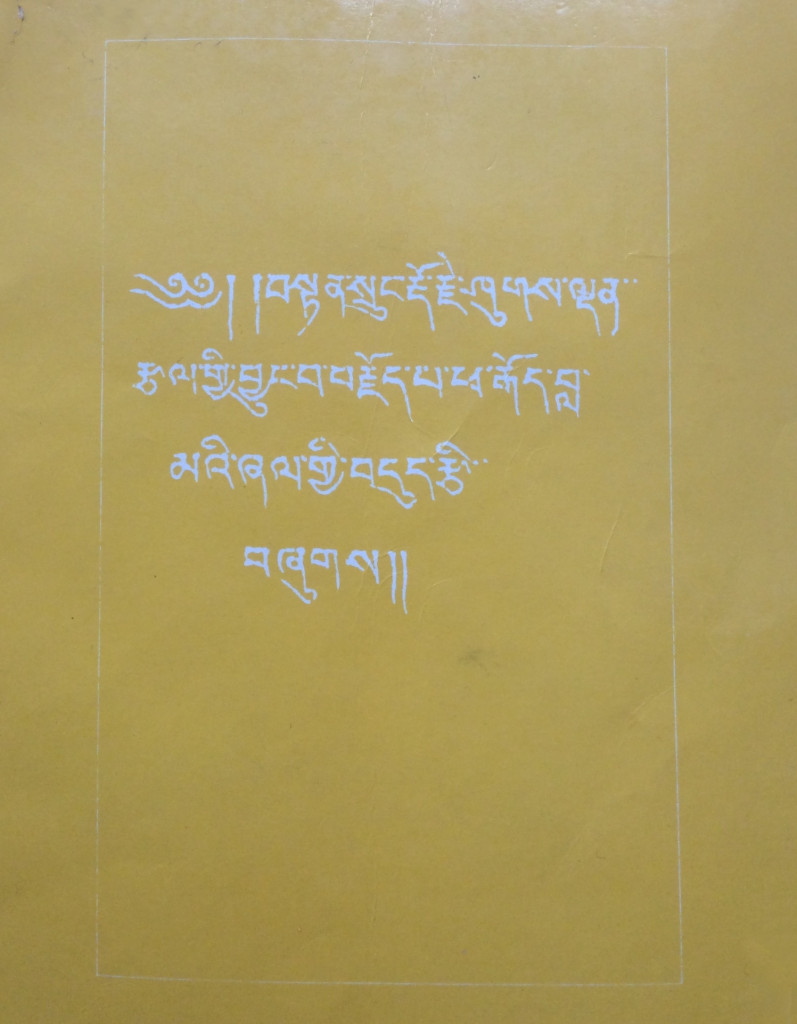 ༄༅། །བསྟན་སྲུང་རྡོ་རྗེ་ཤུགས་ལྡན་
རྩལ་གྱི་བྱུང་བ་བརྗོད་པ་ཕ་རྒོད་བླ་
མའི་ཞལ་གྱི་བདུད་རྩི་
བཞུགས།།